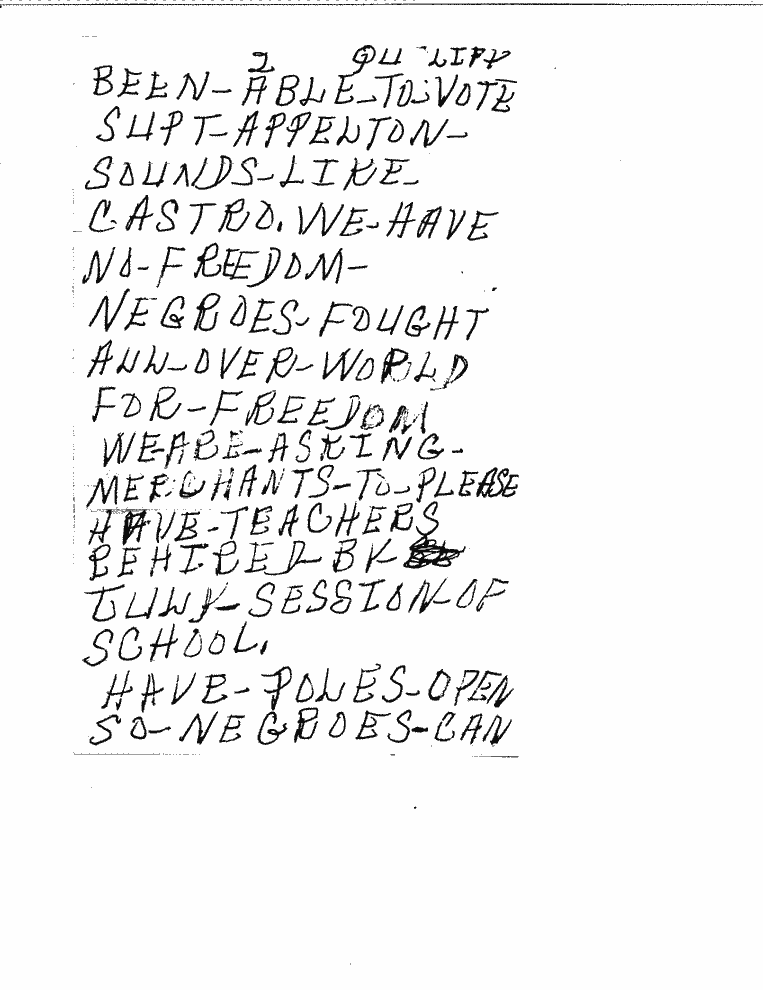 2 QUALIFY
BEEN-ABLE-TO-VOTE
SUPT-APPELTON-
SOUNDS-LIKE-
CASTRO. WE-HAVE
NO-FREEDOM-
NEGROES-FOUGHT
ALL-OVER-WORLD
FOR-FREEDOM
WE-ARE-ASKING-
MERCHANTS-TO-PLEASE
HAVE-TEACHERS
REHIRED-BY
JULY-SESSION-OF
SCHOOL.
HAVE-POLES-OPEN
SO-NEGROES-CAN